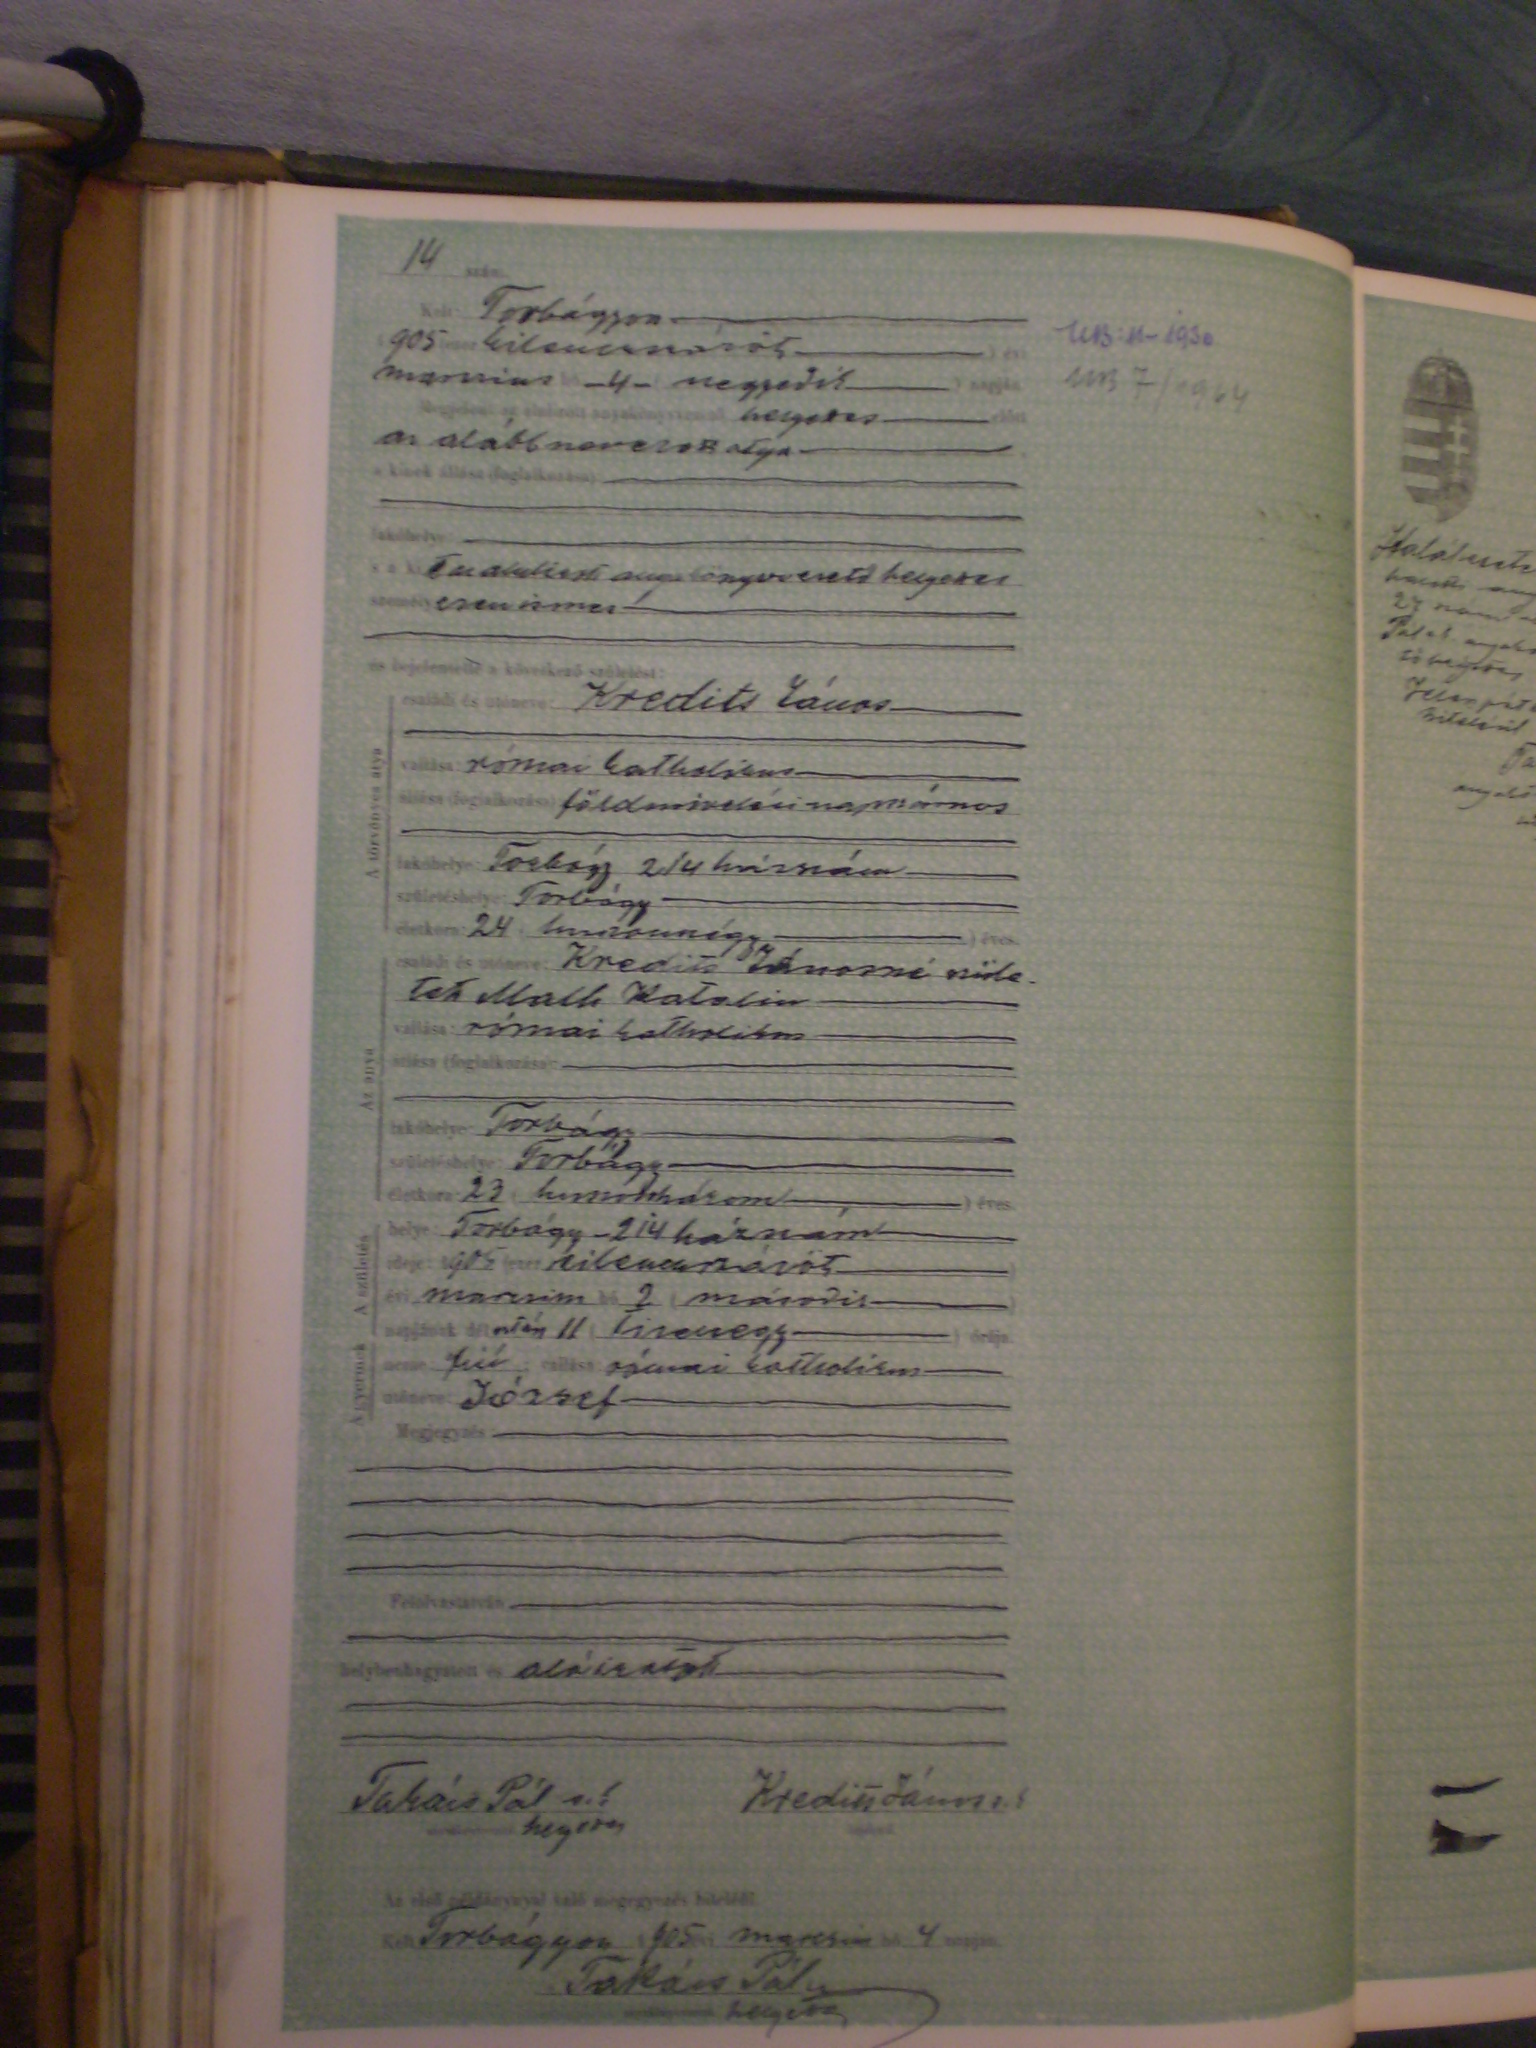 14 szám.
Kelt: Torbágyon
1905 (ezer kilenczszázöt ) évi
marczius -4- negyedik ) napján
Megjelent az alulírott anyakönyvvezető helyettes előtt
az alább nevezett atya
a kinek állása (foglalkozása):
lakóhelye:
s a kit az alulírott anyakönyvvezető helyettes
személyesen ismer
és bejelentette a következő születést:
A törvényes atya
családi és utóneve: Kredits János
vallása: római katholikus
állása (foglalkozása): földmivelési napszámos
lakóhelye: Torbágy 214 házszám
születéshelye: Torbágy
életkora: 24 ( huszonnégy ) éves.
Az anya
családi és utóneve: Kredits Jánosné szüle-
tett Math Katalin
vallása: római katholikus
állása (foglalkozása):
lakóhelye: Torbágy
születéshelye: Torbágy
életkora: 23 ( huszonhárom ) éves.
A születés
helye: Torbágy - 214 házszám
ideje: 1905 (ezer kilenczszázöt )
évi marczius hó 2 ( második )
napjának délután 11 ( tizenegy ) órája.
A gyermek
neme: fiú ; vallása: római katholikus
utóneve: József
Megjegyzés
Felolvastatván
helybenhagyatott és aláíratott
Takács Pál s.k. Kredits János s.k.
helyettes
Az első példánynyal való megegyezés hiteléül.
Kelt Torbágyon 1905 évi marczius hó 4 napján.
Takács Pál
helyettes
1930
7/1964
27 szám